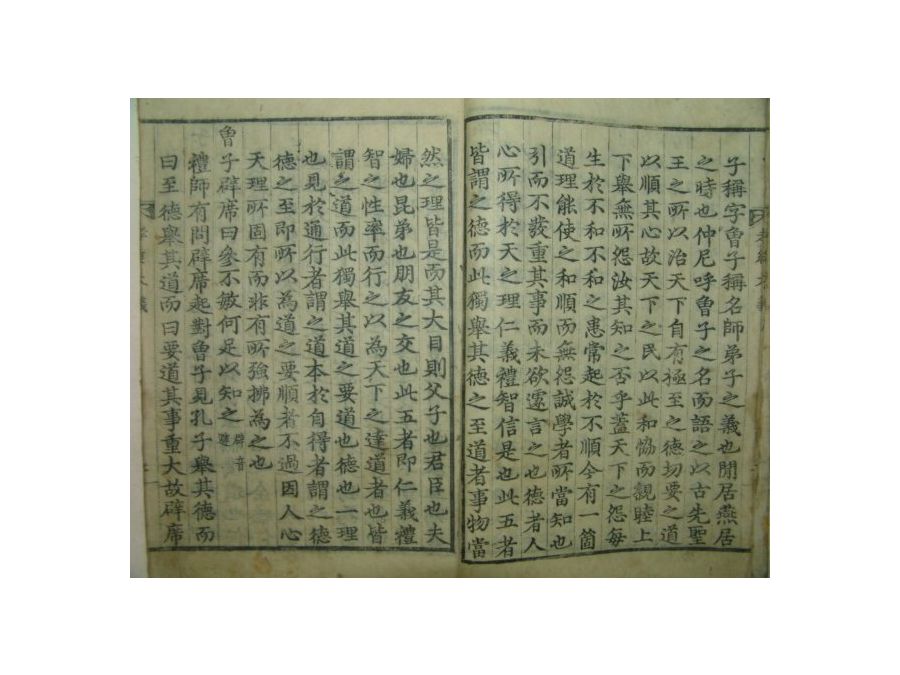 子稱字曾子稱名師弟子之義也閒居燕居
之時也仲尼呼曾子之名而語之以古先聖
王之所以治天下自有極至之德切要之道
以順其心故天下之民以此和協而親睦上
下舉無所怨汝其知之否乎蓋天下之怨每
生於不和不和之患常起於不順今有一箇
道理能使之和順而無怨誠學者所當知也
引而不發重其事而未欲遽言之也德者人
心所得於天之理仁義禮智信是也此五者
皆謂之德而此獨舉其德之至道者事物當
然之理皆是而其大目則父子也君臣也夫
婦也昆弟也朋友之交也此五者即仁義禮
智之性率而行之以為天下之達道者也皆
謂之道而此獨舉其道之要道也德也一理
也見於通行者謂之道本於自得者謂之德
德之至即所以為道之要順者不過因人心
天理所固有而非有所強拂為之也
曾子辟席曰參不敏何足以知之辟音
避
禮師有問辟席起對曾子見孔子舉其德而
曰至德舉其道而曰要道其事重大故辟席